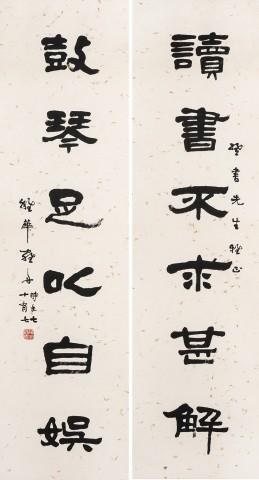 書先生雅正
讀書不求甚解
鼓琴足以自娛
時年七
十有七